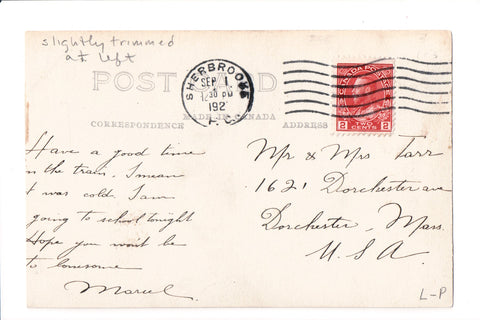 slightly trimmed
at left
POST CARD
SHERBROOKE
SEP 1
12 30 PM
192
P.Q.
CANADA POSTAGE
2 TWO CENTS 2
MADE IN CANADA
CORRESPONDENCE
ADDRESS
Have a good time
n the train. I mean
t was cold. I am
going to school tonight
Hope you wont be
to lonesome
Marcel.
Mr & Mrs Tarr
1621 Dorchester ave
Dorchester, Mass.
U.S.A.
L-P